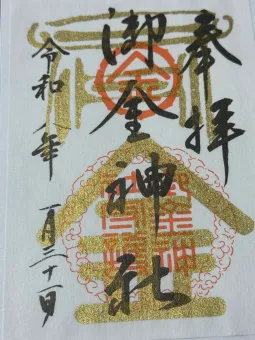 奉拝
御金神社
令和八年 一月三十一日
金